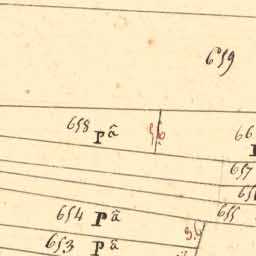 659
658 Pã
66
657
656
654 Pã
655
653 Pã